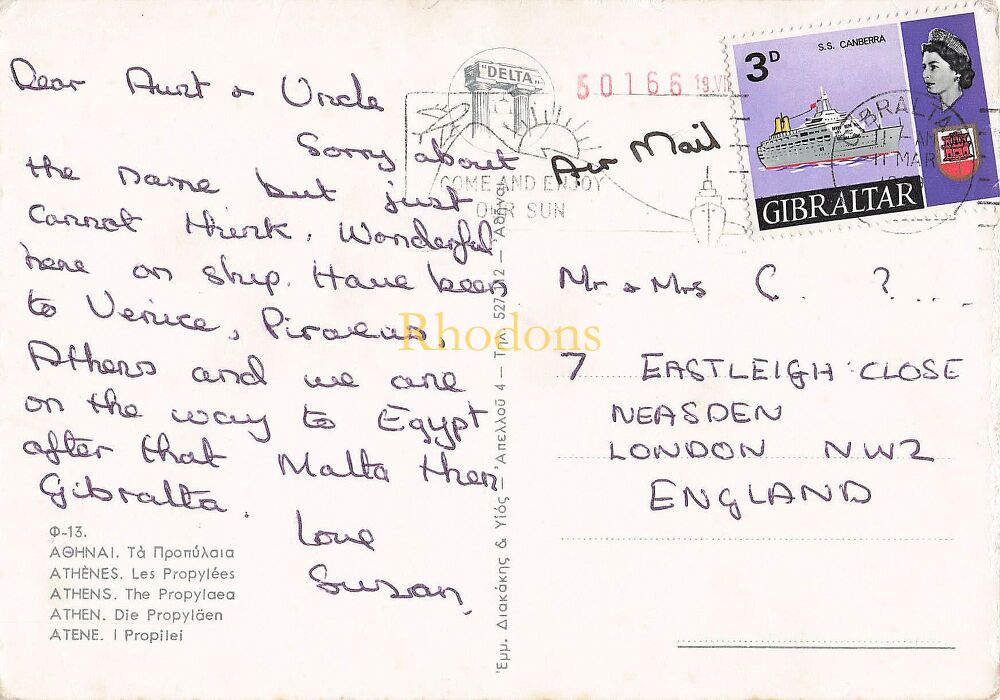 Dear Aunt + Uncle
Sorry about
the name but just
cannot think. Wonderful
here on ship. Have been
to Venice, Piraeus,
Athens and we are
on the way to Egypt
after that Malta then
Gibralta.
Love
Susan.
Φ-13.
ΑΘΗΝΑΙ. Τὰ Προπύλαια
ATHÈNES. Les Propylées
ATHENS. The Propylaea
ATHEN. Die Propyläen
ATENE. I Propilei
"DELTA"
COME AND ENJOY
OUR SUN
50166
Έμμ. Διακάκης & Υἱός - Ἀπελλοῦ 4 - Τηλ. - Ἀθῆναι
Air Mail
3D
S.S. CANBERRA
GIBRALTAR
GIBRALTAR
AM
11 MAR
Mr + Mrs C. ?....
7 EASTLEIGH CLOSE
NEASDEN
LONDON NW2
ENGLAND
Rhodons